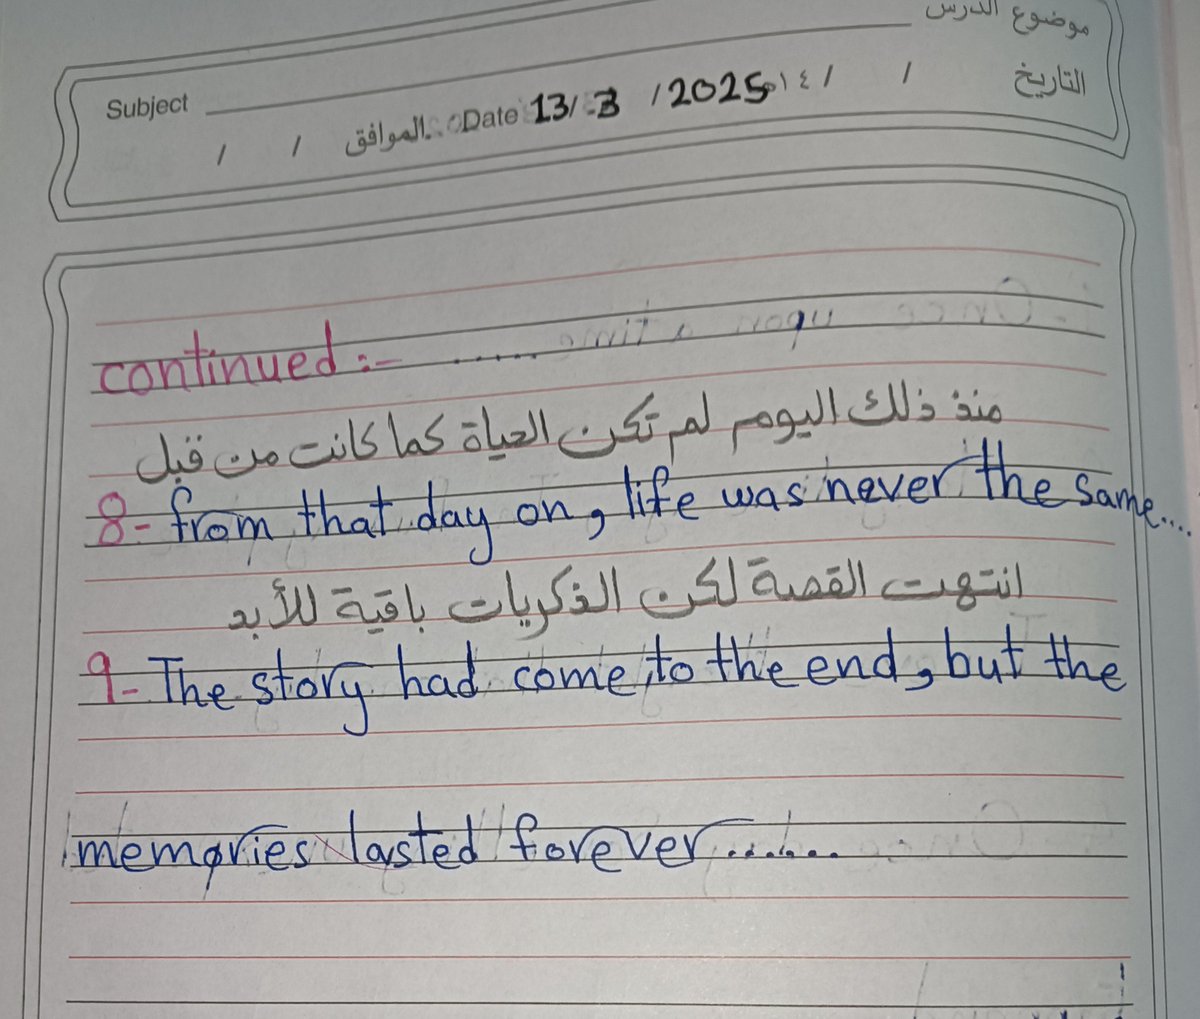 موضوع الدرس
التاريخ / / ١٤
Subject
Date 13/3/2025 الموافق / /
continued :- ......
منذ ذلك اليوم لم تكن الحياة كما كانت من قبل
8- from that day on, life was never the same....
انتهت القصة لكن الذكريات باقية للأبد
9- The story had come to the end, but the
memories lasted forever.......